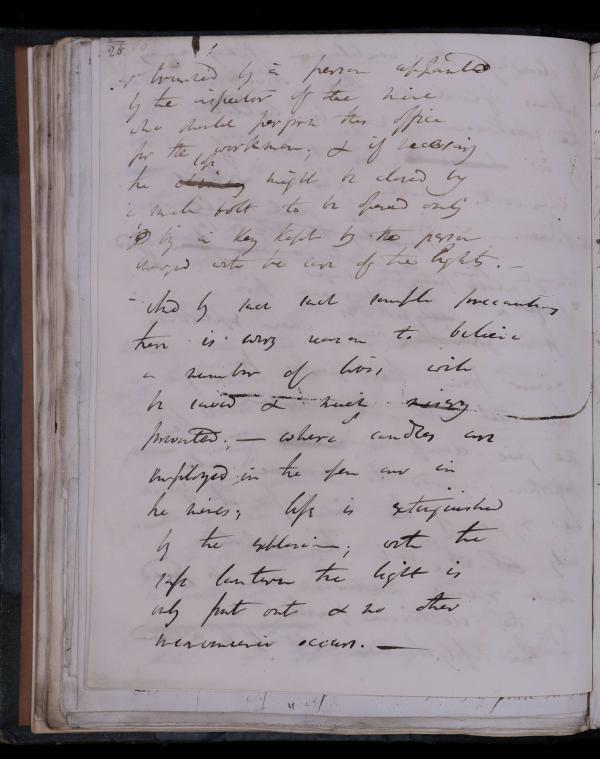 26
or trimmed by a person appointed
by the inspector of the mine
who should perform this office
for the workmen; & if necessary
the might be closed by
a such bolt to be opened only
by a key kept by the person
charged with the care of the lights. —
And by such simple precautions
there is every reason to believe
a number of lives will
be saved & much misery
prevented. — where candles are
employed in the open air in
the mines; life is extinguished
by the explosion; with the
safe lantern the light is
only put out & no other
inconvenience occurs. —